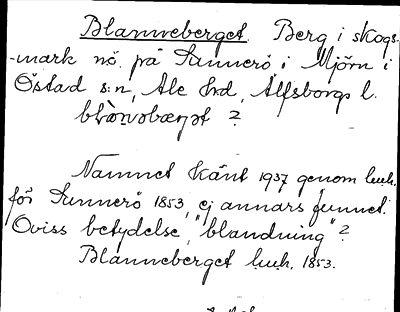 Blanneberget. Berg i skogs-
-mark nö. på Sunnerö i Mjörn i
Östad s:n, Ale hd, Älfsborgs l.
?
Namnet känt 1937 genom luk.
för Sunnerö 1853, ej annars funnet.
Oviss betydelse, "blandning"?
Blanneberget luk. 1853.